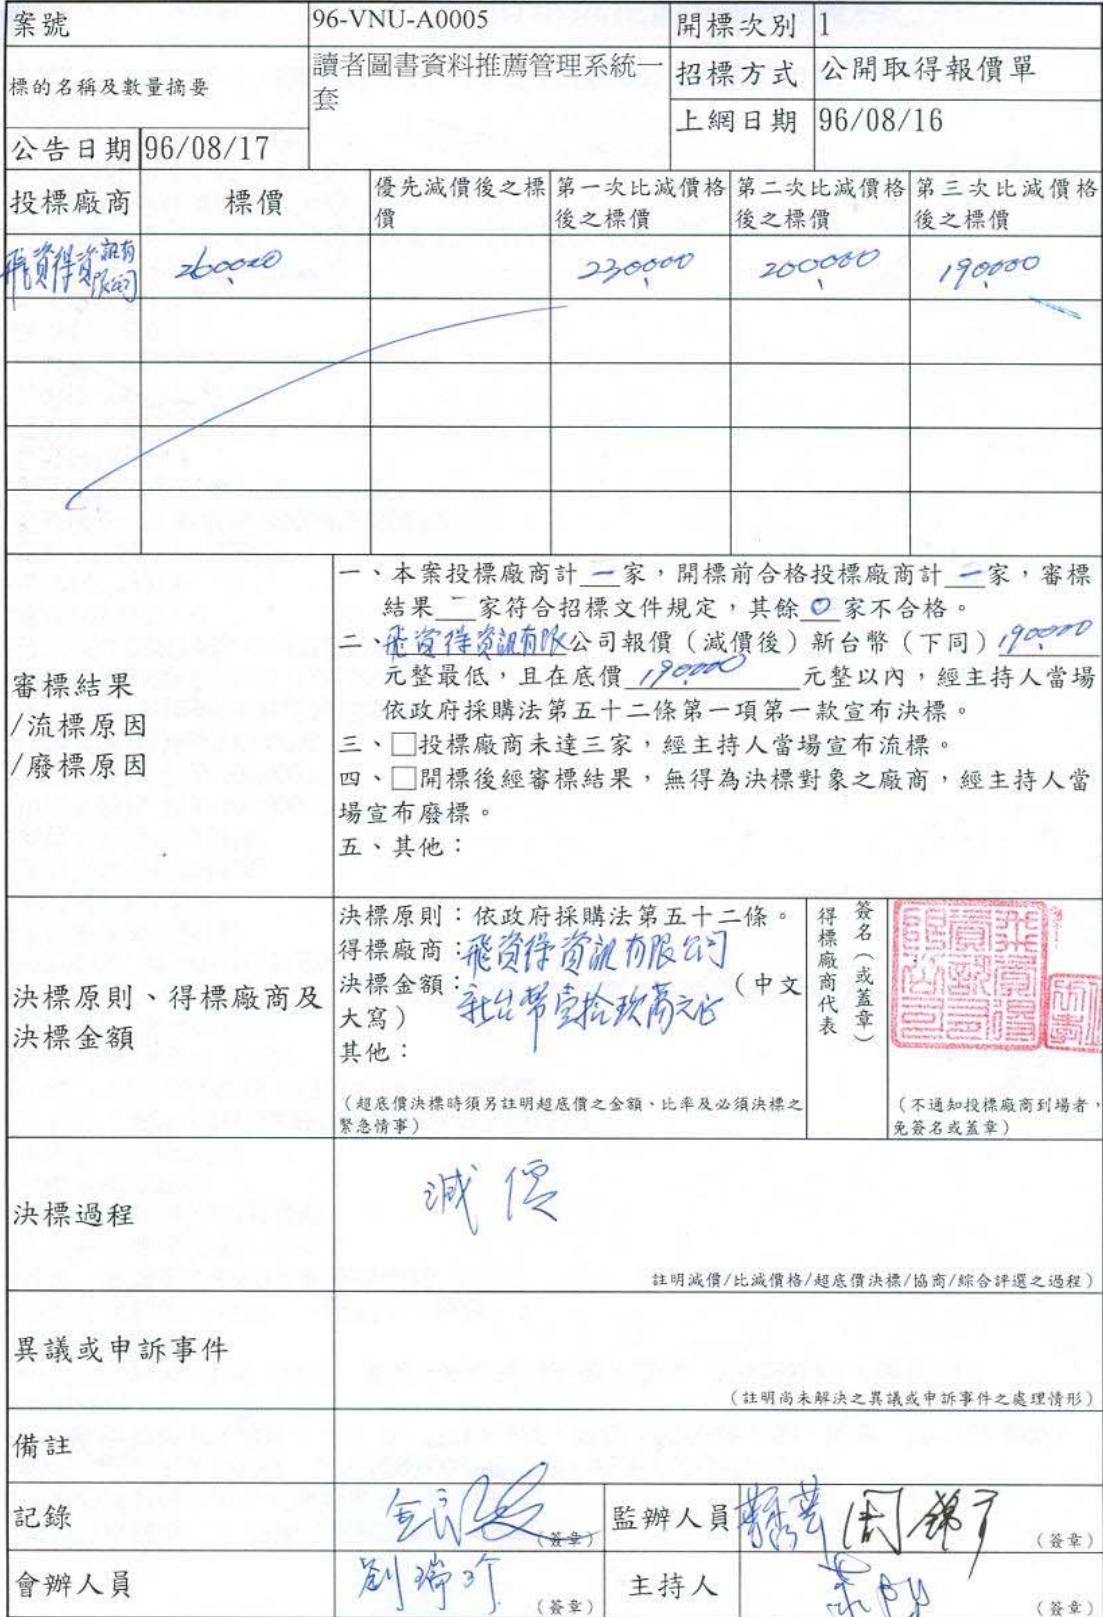 案號 96-VNU-A0005 開標次別 1
標的名稱及數量摘要 讀者圖書資料推薦管理系統一
套
招標方式 公開取得報價單
上網日期 96/08/16
公告日期 96/08/17
投標廠商 標價 優先減價後之標價 第一次比減價格後之標價 第二次比減價格後之標價 第三次比減價格後之標價
飛資得資訊有限公司 260000 230000 200000 190000
審標結果
/流標原因
/廢標原因
一、本案投標廠商計一家，開標前合格投標廠商計一家，審標
結果一家符合招標文件規定，其餘0家不合格。
二、飛資得資訊有限公司報價（減價後）新台幣（下同）190000
元整最低，且在底價190000元整以內，經主持人當場
依政府採購法第五十二條第一項第一款宣布決標。
三、□投標廠商未達三家，經主持人當場宣布流標。
四、□開標後經審標結果，無得為決標對象之廠商，經主持人當
場宣布廢標。
五、其他：
決標原則、得標廠商及
決標金額
決標原則：依政府採購法第五十二條。
得標廠商：飛資得資訊有限公司
決標金額：新台幣壹拾玖萬元正（中文
大寫）
其他：
（超底價決標時須另註明超底價之金額、比率及必須決標之
緊急情事）
得標廠商代表
簽名（或蓋章）
（不通知投標廠商到場者，
免簽名或蓋章）
決標過程
減價
註明減價/比減價格/超底價決標/協商/綜合評選之過程）
異議或申訴事件
（註明尚未解決之異議或申訴事件之處理情形）
備註
記錄 （簽章） 監辦人員 （簽章）
會辦人員 （簽章） 主持人 （簽章）